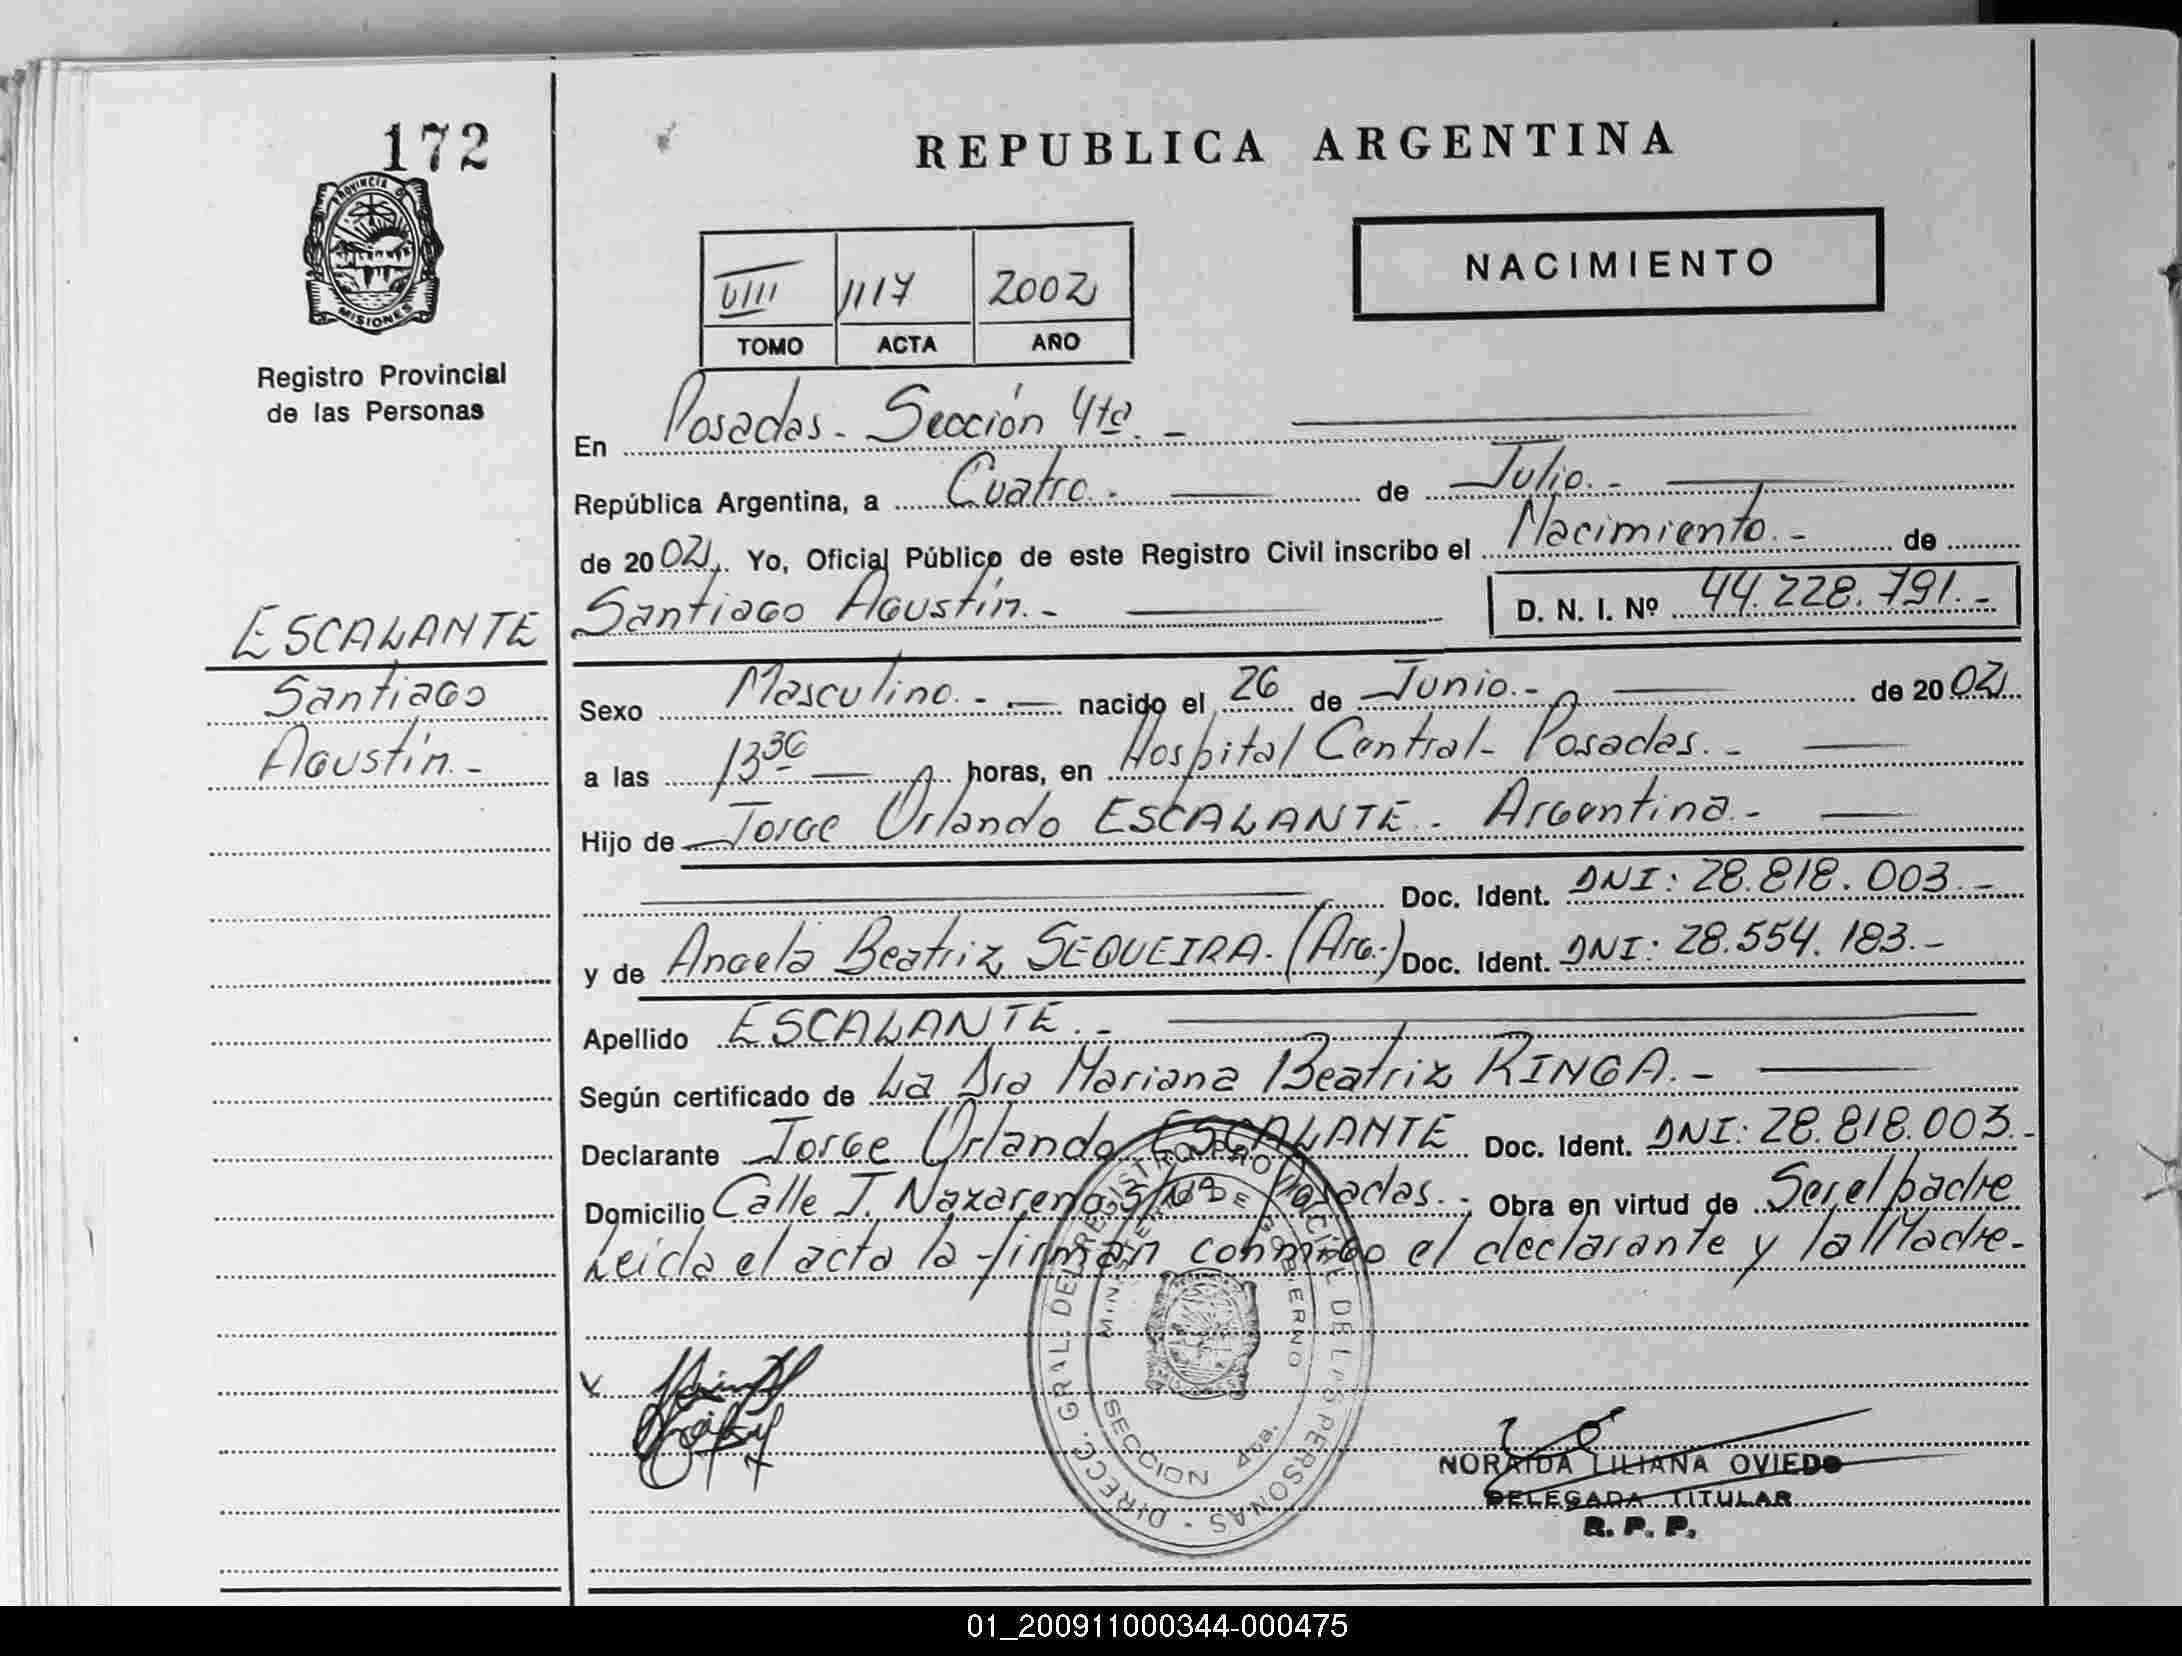 172
PROVINCIA DE
MISIONES
Registro Provincial
de las Personas
REPUBLICA ARGENTINA
NACIMIENTO
VIII 1117 2002
TOMO ACTA AÑO
En Posadas - Sección 4ta. -
República Argentina, a Cuatro.- de Julio.-
de 2002. Yo, Oficial Público de este Registro Civil inscribo el Nacimiento.- de
Santiago Agustín.- D. N. I. Nº 44.228.791.-
ESCALANTE
Santiago
Agustín.-
Sexo Masculino.- nacido el 26 de Junio.- de 2002
a las 13 30 horas, en Hospital Central - Posadas.-
Hijo de Jorge Orlando ESCALANTE - Argentina.-
Doc. Ident. DNI: 28.818.003.-
y de Angela Beatriz SEQUEIRA. (Arg.-) Doc. Ident. DNI: 28.554.183.-
Apellido ESCALANTE.-
Según certificado de La Dra Mariana Beatriz RINGA.-
Declarante Jorge Orlando ESCALANTE Doc. Ident. DNI: 28.818.003.-
Domicilio Calle J. Nazareno s/Nº Posadas.- Obra en virtud de Ser el padre
Leída el acta la firman conmigo el declarante y la Madre.-
DIRECC. GRAL. DEL REGISTRO PROVINCIAL DE LAS PERSONAS
MINISTERIO DE GOBIERNO
SECCION 4ta.
NORAIDA LILIANA OVIEDO
DELEGADA TITULAR
R. P. P.
01_200911000344-000475